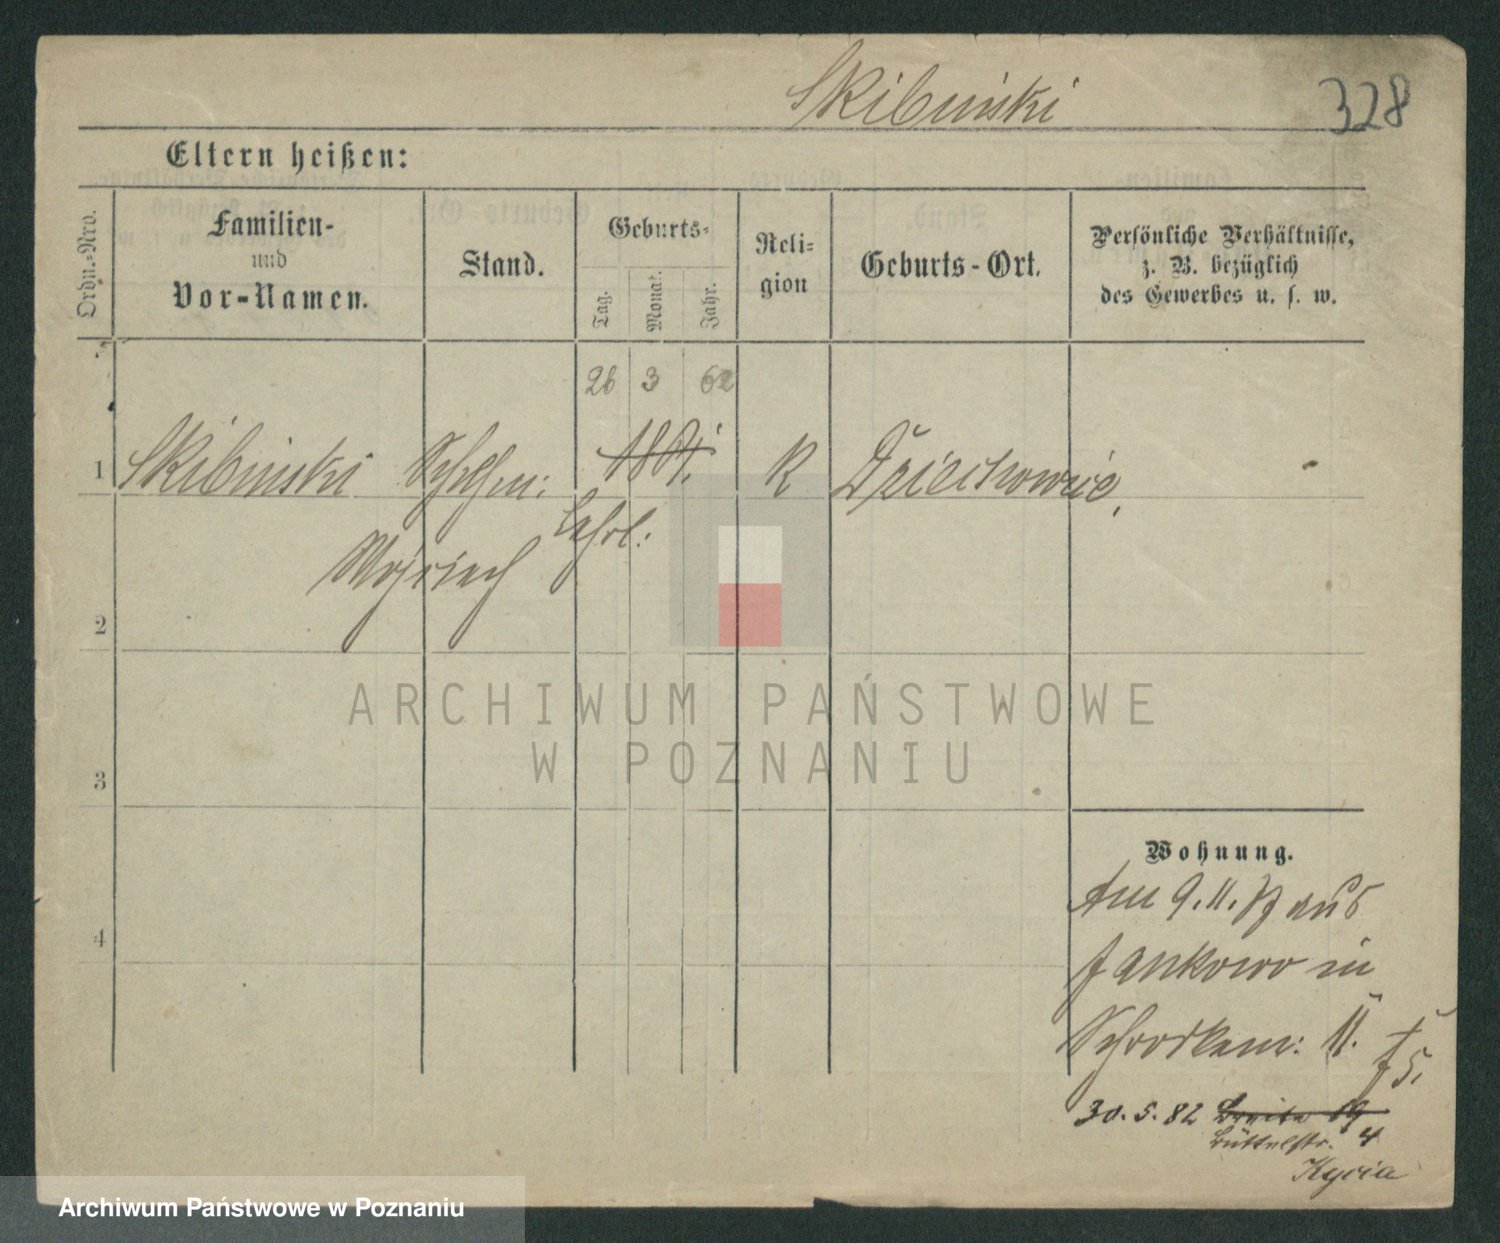 Skibinski
328
Eltern heißen:
Ordn.-Nro.
Familien-
und
Vor-Namen.
Stand.
Geburts-
Tag.
Monat.
Jahr.
Reli-
gion
Geburts-Ort.
Persönliche Verhältnisse,
z. B. bezüglich
des Gewerbes u. s. w.
26 3 62
1 Skibinski 1861. R
Wojciech Lehrl:
2
3
4
Wohnung.
Am 9.11. aus
Jankowo in
11.
30.5.82 Breite 19
Büttelstr. 4
ARCHIWUM PAŃSTWOWE
W POZNANIU
Archiwum Państwowe w Poznaniu